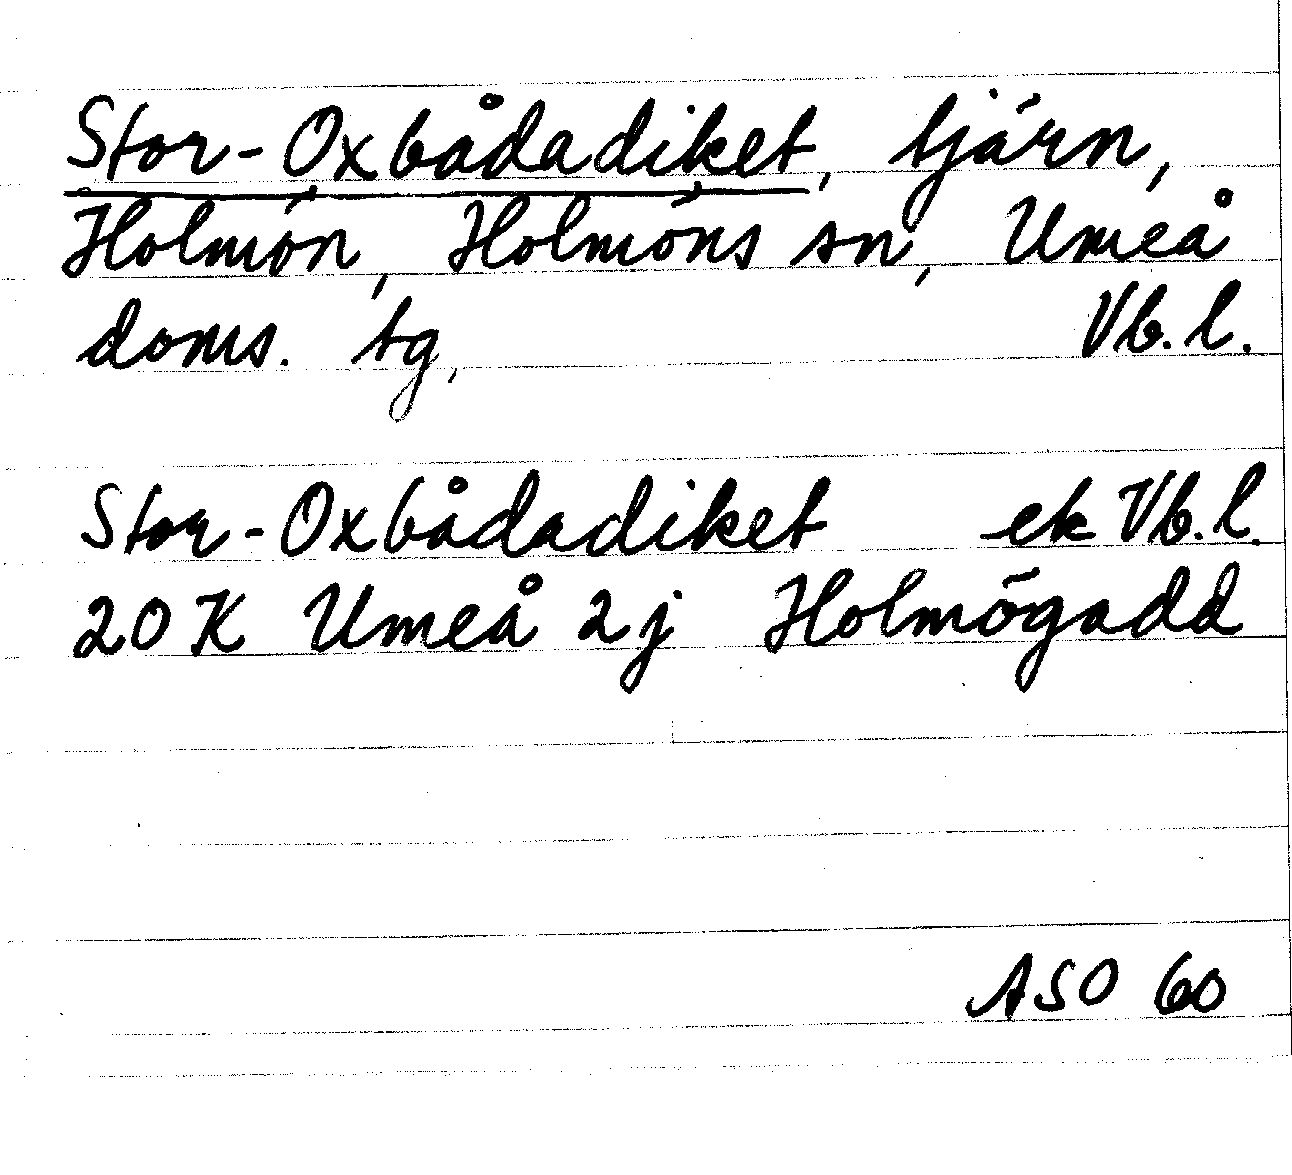 Stor-Oxbådadiket, tjärn,
Holmön, Holmöns sn, Umeå
doms. tg, Vb.l.
Stor-Oxbådadiket ek Vb.l.
20 K Umeå 2j Holmögadd
ASO 60